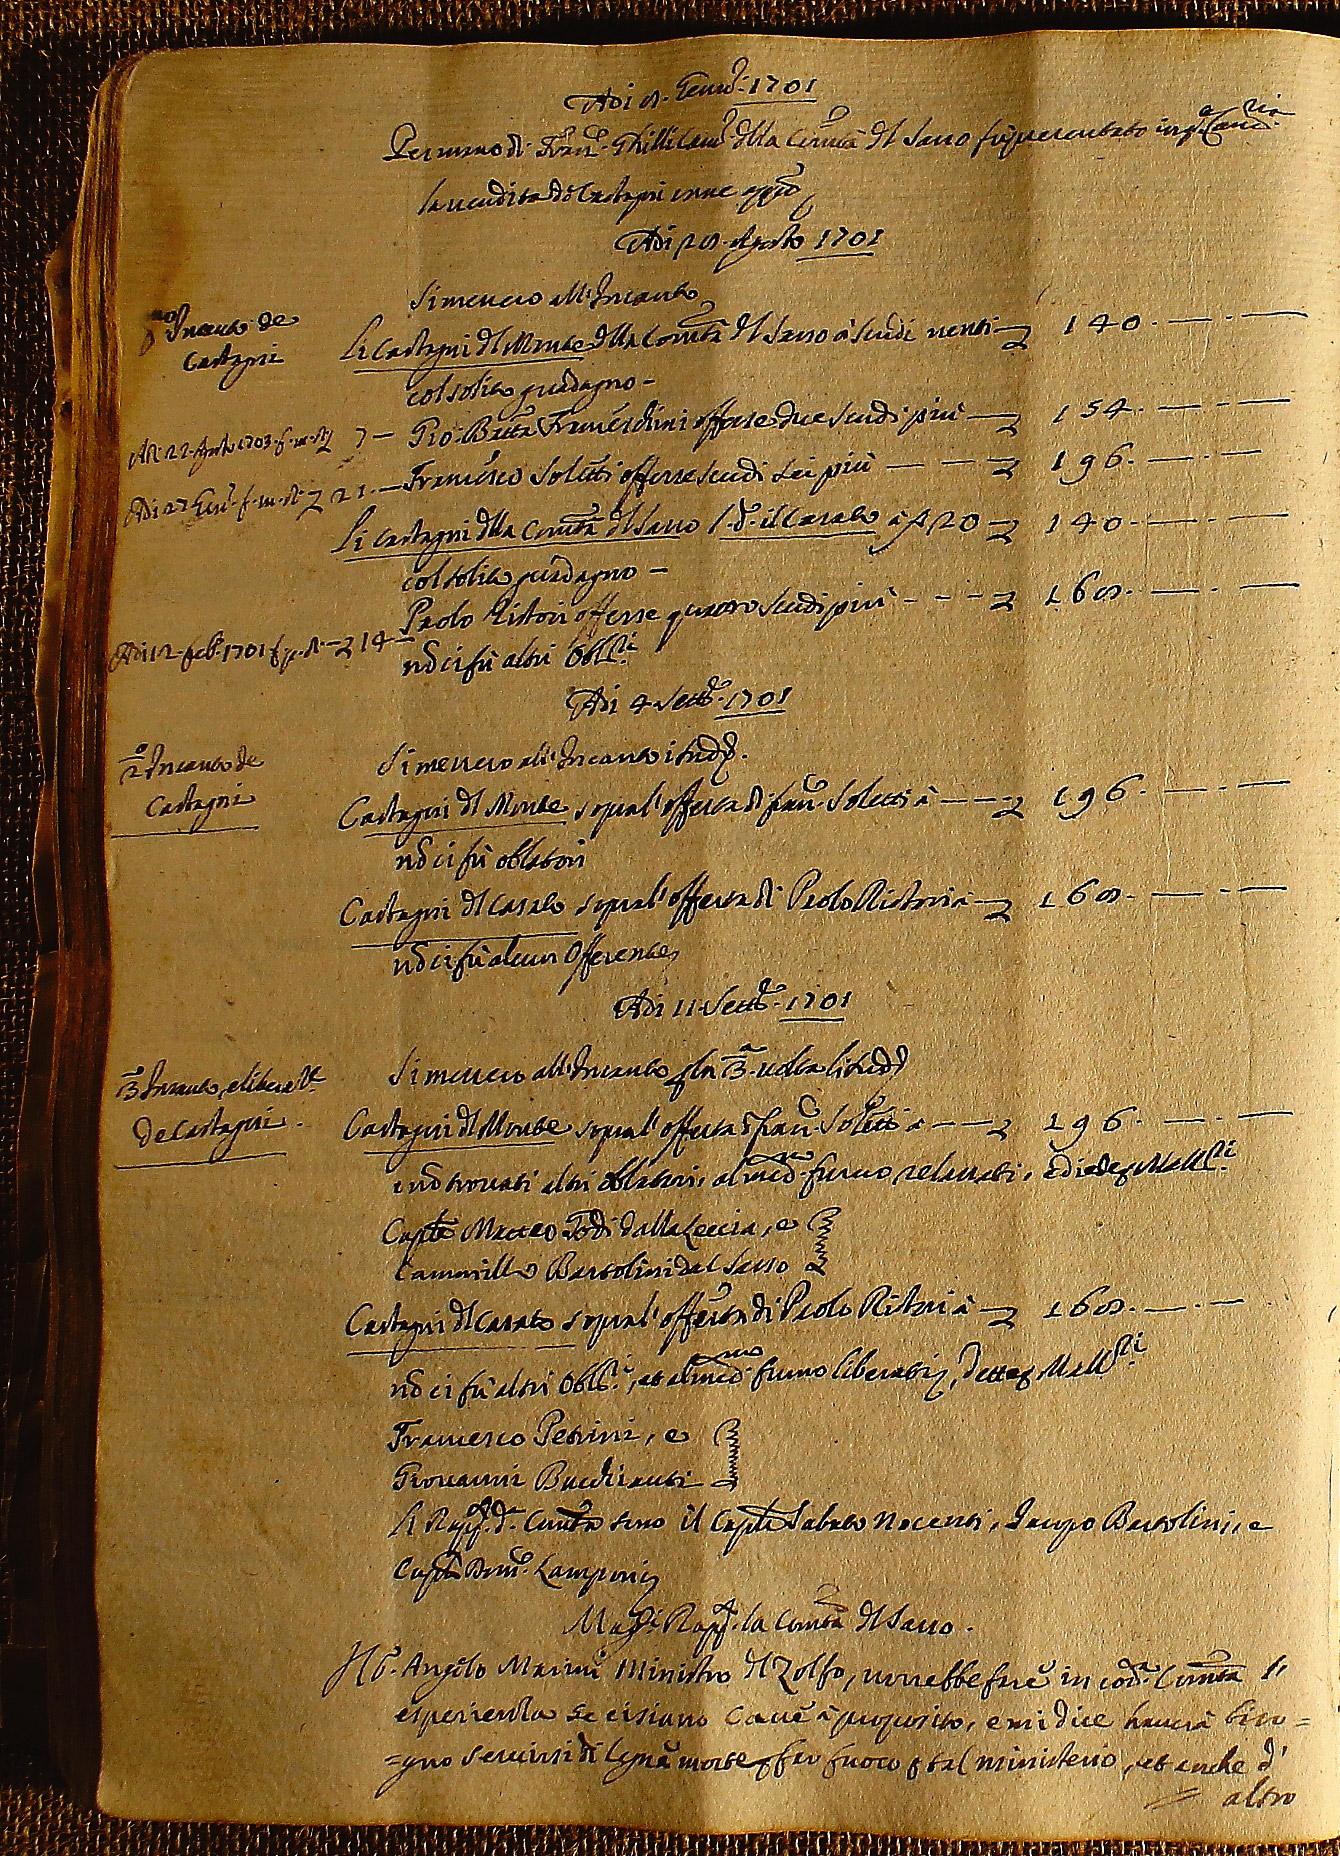 Adi 8. Genn.o 1701
Per mano di Fran.o Canc.re della Com.tà del Sasso fu presentato in q.a Canc.ria
la vendita de Castagni come app.o
Adi 28. Agosto 1701
Si messero all'Incanto
p.o Incanto de
Castagni
Li Castagni del Monte della Com.tà del Sasso à scudi venti 140. — —
col solito guadagno —
Adi 22. Ag.to 1703 7 — Gio: Batta Franceschini offerse due scudi più — 154. — —
Adi 27 Gen.o 21. — Francesco Soletti offerse scudi sei più — — — 196. — —
Li Castagni della Com.tà del Sasso l.d. il Casato à 20 — 140. — —
col solito guadagno —
Paolo Ristori offerse quattro scudi più - - - 168. — —
Adi 12. feb.o 1701 14 —
nō ci fù altri Obl.ri
Adi 4 Sett.e 1701
2.o Incanto de
Castagni
Si messero all'Incanto i sud.i
Castagni del Monte sopra l'offerta di Fran.o Soletti à — — 196. — —
nō ci fù oblatori
Castagni del Casato sopra l'offerta di Paolo Ristori à — 168. — —
nō ci fù alcun Offerente
Adi 11. Sett.e 1701
3.o Incanto, e liberat.e
de Castagni.
Si messero all'Incanto p la 3.a volta li sud.i
Castagni del Monte sopra l'offerta di Fran.o Soletti à — — 196. — —
e nō trovati altri oblatori, al med.mo furno rilassati, e diede p Mall.ri
Cap.o Matteo Todi dalla Leccia, e
Cammillo Bartolini dal Sasso
Castagni del Casato sopra l'offerta di Paolo Ristori à — 168. — —
nō ci fù altri Obl.ri, et al med.mo furno liberati, dette p Mall.ri
Francesco Petrini, e
Giovanni
Li Rapp.ti d.a Com.tà sono il Cap.o Sabato Nocenti, Jacopo Bartolini, e
Cap.o Dom.o Lamponi
Mag.ci Rapp.ti la Com.tà del Sasso.
Angelo Marini Ministro del Zolfo, vorrebbe fare in cod.a Com.tà l'
esperienza se ci siano Cave à proposito, e mi dice haverà biso=
=gno servirsi di legna morte p far fuoco p tal ministerio, et anche d'
= altro